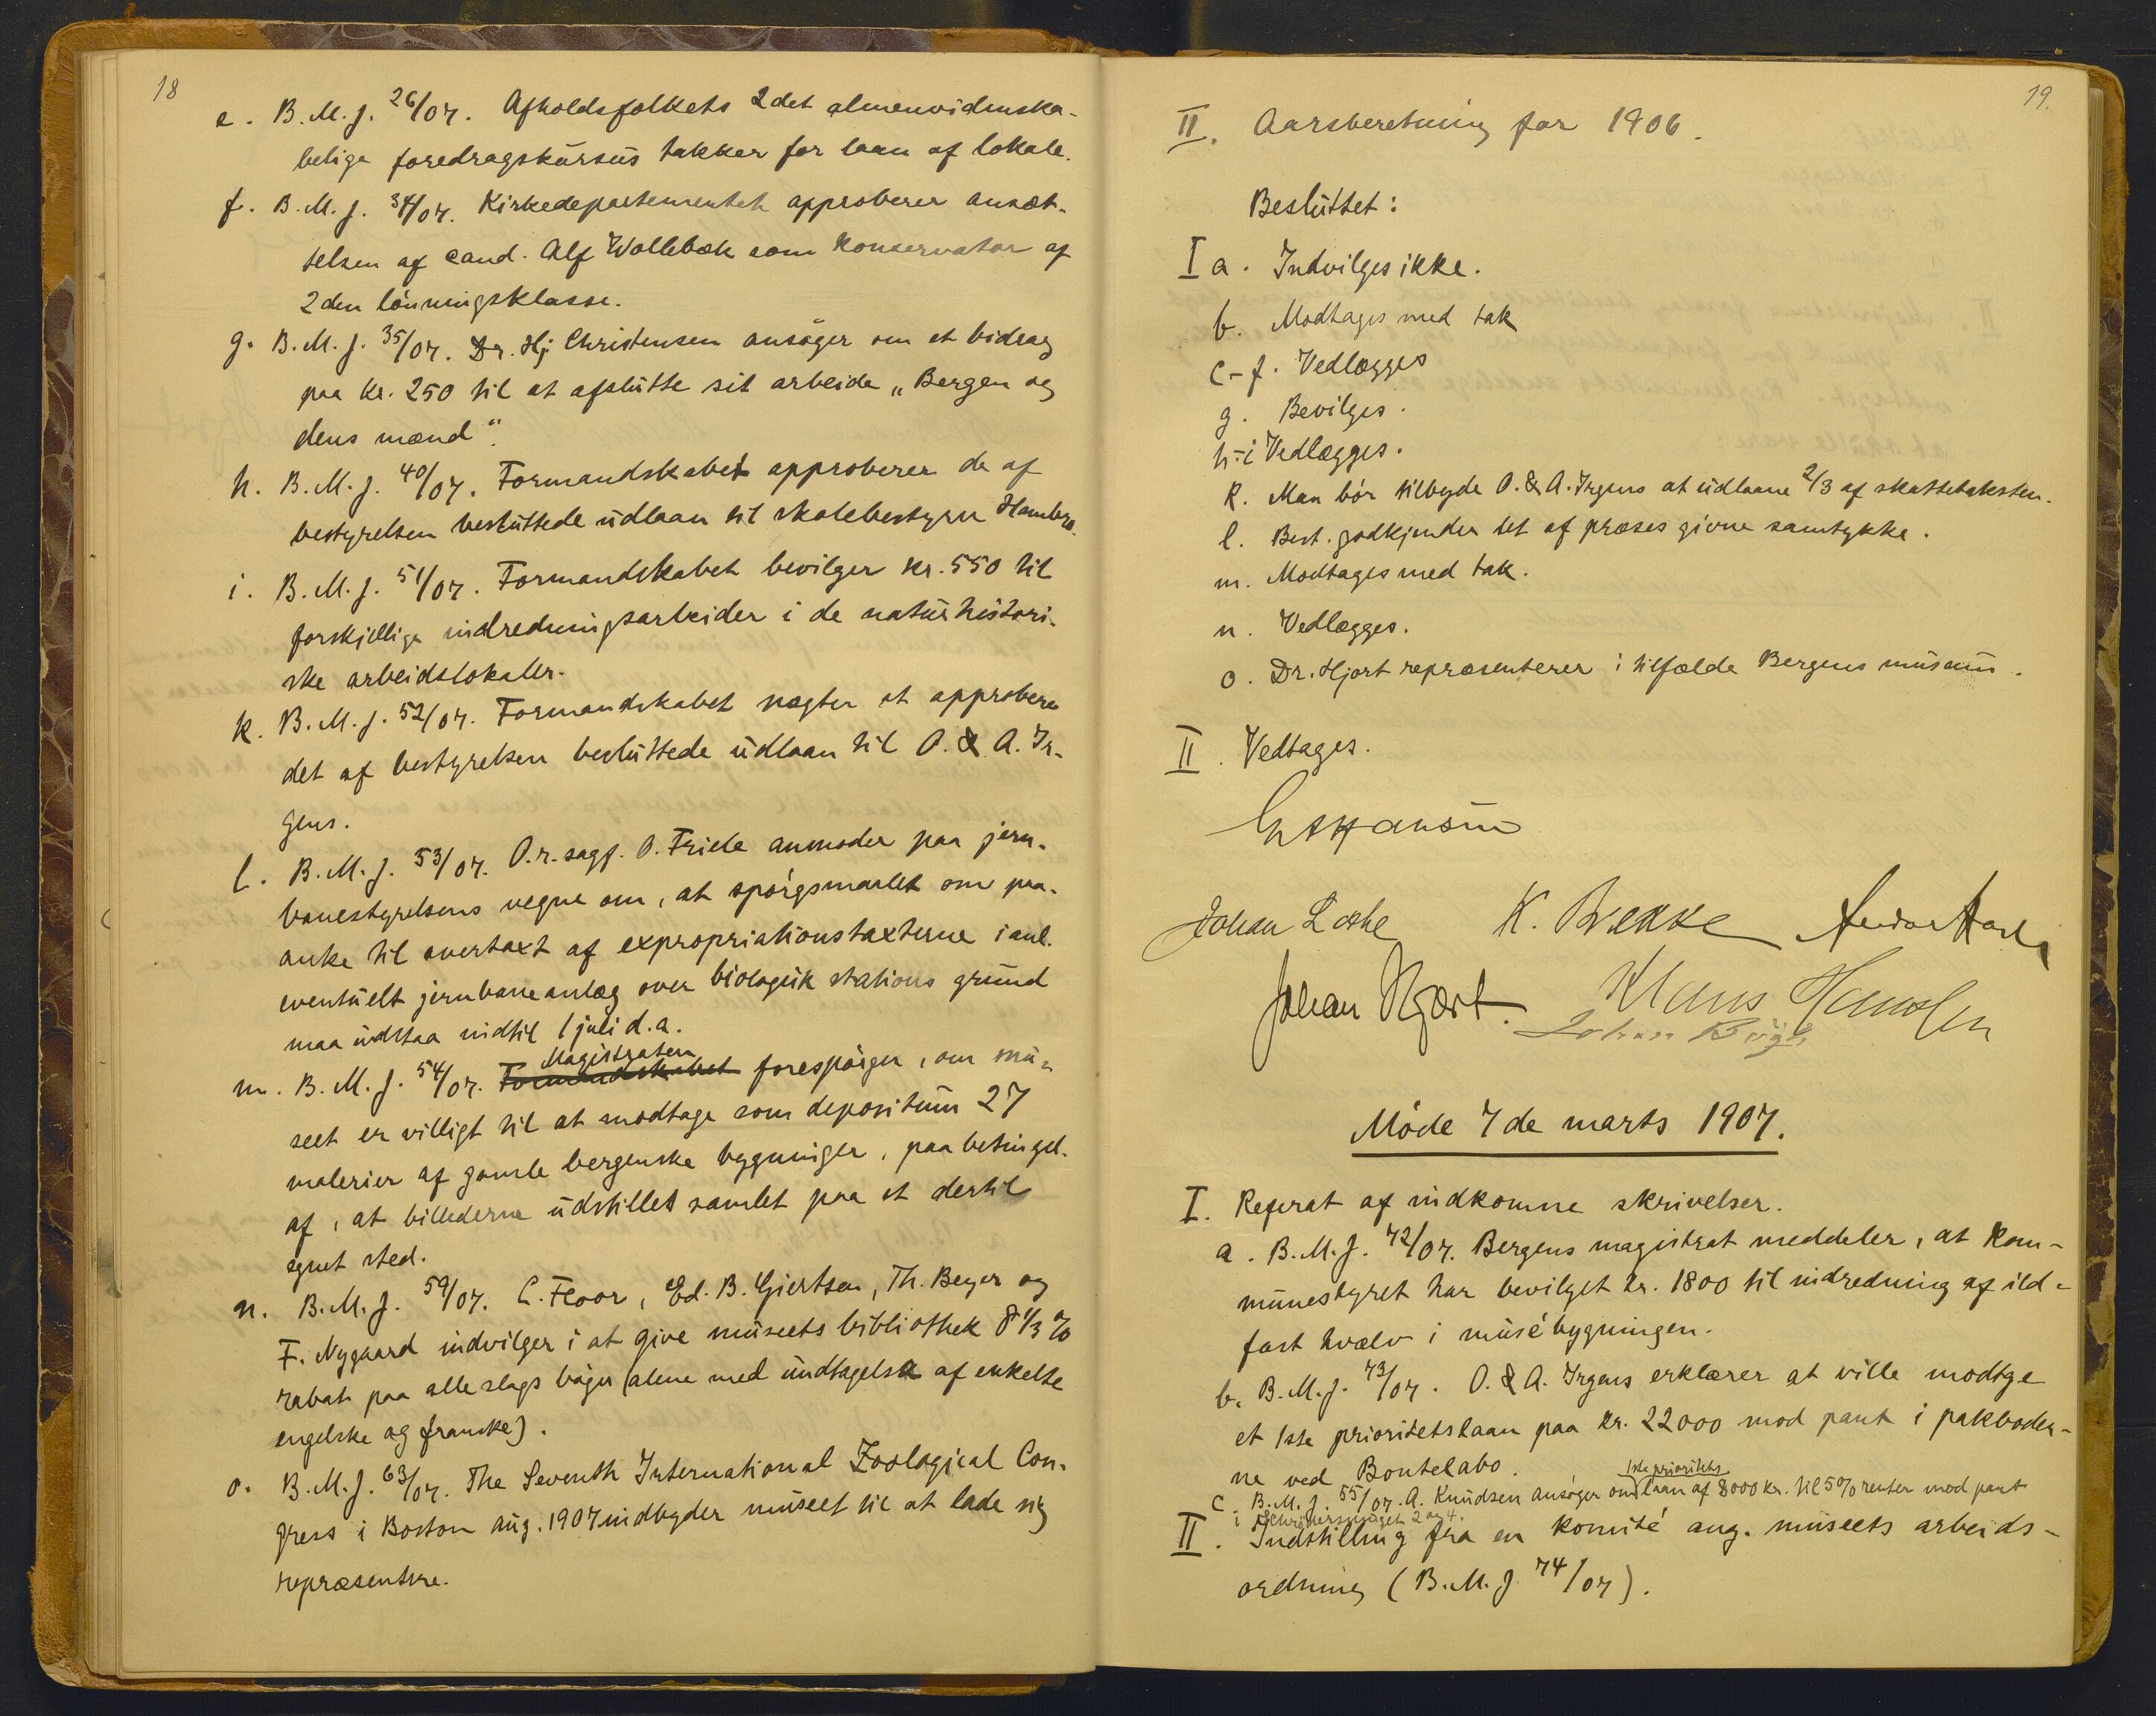 18
e. B. M. J. 26/07. Afholdsfolkets 2det almenvidenska-
belige foredragskursus takker for laan af lokale.
f. B. M. J. 34/07. Kirkedepartementet approberer ansæt-
telsen af cand. Alf Wollebæk som konservator af
2den lönningsklasse.
g. B. M. J. 35/07. Dr. Hj. Christensen ansöger om et bidrag
paa kr. 250 til at afslutte sit arbeide „Bergen og
dens mænd".
h. B. M. J. 40/07. Formandskabet approberer de af
bestyrelsen besluttede udlaan til skolebestyrer Hambro.
i. B. M. J. 51/07. Formandskabet bevilger kr. 550 til
forskjellige indredningsarbeider i de naturhistori-
ske arbeidslokaler.
k. B. M. J. 52/07. Formandskabet nægter at approbere
det af bestyrelsen besluttede udlaan til O. & A. Ir-
gens.
l. B. M. J. 53/07. O.r.sagf. O. Friele anmoder paa jern-
banestyrelsens vegne om, at spörgsmaalet om paa-
anke til overtaxt af expropriationstaxterne i anl.
eventuelt jernbaneanlæg over biologisk stations grund
maa udstaa indtil 1 juli d.a.
Magistraten
m. B. M. J. 54/07. Formandskabet forespörger, om mu-
seet er villigt til at modtage som depositum 27
malerier af gamle bergenske bygninger, paa betingel.
af, at billederne udstilles samlet paa et dertil
egnet sted.
n. B. M. J. 59/07. C. Floor, Ed. B. Giertsen, Th. Beyer og
F. Nygaard indvilger i at give museets bibliothek 8 1/3 %
rabat paa alle slags böger (alene med undtagelse af enkelte
engelske og franske).
o. B. M. J. 63/07. The Seventh International Zoological Con-
gress i Boston aug. 1907 indbyder museet til at lade sig
repræsentere.
19.
II. Aarsberetning for 1906.
Besluttet:
I a. Indvilges ikke.
b. Modtages med tak
c-f. Vedlægges
g. Bevilges.
h-i Vedlægges.
k. Man bör tilbyde O. & A. Irgens at udlaane 2/3 af skattetaksten.
l. Best. godkjender det af præses givne samtykke.
m. Modtages med tak.
n. Vedlægges.
o. Dr. Hjort repræsenterer i tilfælde Bergens museum.
II. Vedtages.
Johan Lothe K. Brekke
Johan Hjort. Klaus Hanssen
Johan Bögh
Möde 7de marts 1907.
I. Referat af indkomne skrivelser.
a. B. M. J. 72/07. Bergens magistrat meddeler, at kom-
munestyret har bevilget kr. 1800 til indredning af ild-
fast hvælv i musébygningen.
b. B. M. J. 73/07. O. & A. Irgens erklærer at ville modtge
et 1ste prioritetslaan paa kr. 22000 mod pant i pakboder-
ne ved Bontelabo.
1ste prioritets
c. B. M. J. 55/07. A. Knudsen ansöger om laan af 8000 kr. til 5% renter mod pant
i 2 og 4.
II. Indstilling fra en komité ang. museets arbeids-
ordning (B. M. J. 74/07).